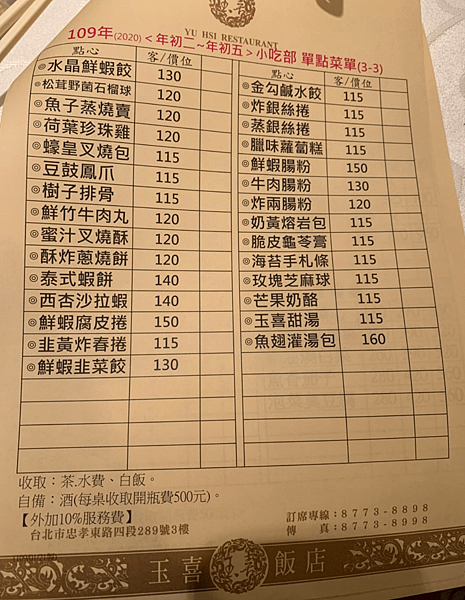 YU HSI RESTAURANT
109年(2020)<年初二~年初五>小吃部 單點菜單(3-3)
點心 客/價位
◎水晶鮮蝦餃 130
◎松茸野菌石榴球 120
◎魚子蒸燒賣 120
◎荷葉珍珠雞 120
◎蠔皇叉燒包 115
◎豆鼓鳳爪 115
◎樹子排骨 115
◎鮮竹牛肉丸 120
◎蜜汁叉燒酥 120
◎酥炸蔥燒餅 120
◎泰式蝦餅 140
◎西杏沙拉蝦 140
◎鮮蝦腐皮捲 150
◎韭黃炸春捲 115
◎鮮蝦韭菜餃 130
點心 客/價位
◎金勾鹹水餃 115
◎炸銀絲捲 115
◎蒸銀絲捲 115
◎臘味蘿蔔糕 115
◎鮮蝦腸粉 150
◎牛肉腸粉 130
◎炸兩腸粉 120
◎奶黃熔岩包 115
◎脆皮龜苓膏 115
◎海苔手札條 115
◎玫瑰芝麻球 115
◎芒果奶酪 115
◎玉喜甜湯 115
◎魚翅灌湯包 160
收取：茶.水費、白飯。
自備：酒(每桌收取開瓶費500元)。
【外加10%服務費】
台北市忠孝東路四段289號3樓
訂席專線：8773-8898
傳 真：8773-8998
玉喜飯店